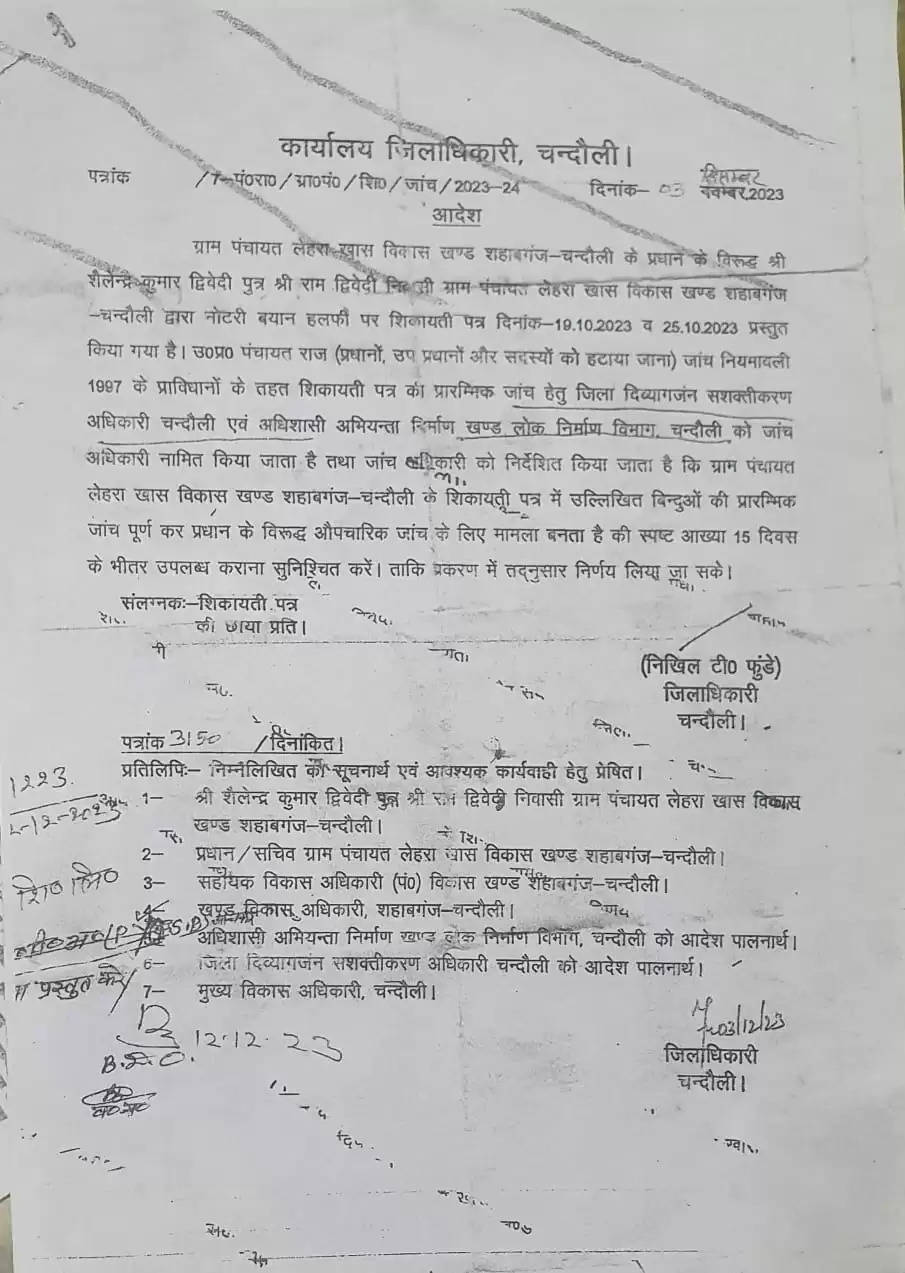 कार्यालय जिलाधिकारी, चन्दौली।
पत्रांक /7-पं०रा०/ग्रा०पं०/शि०/जांच/2023-24 दिनांक- 03 दिसम्बर नवम्बर,2023
आदेश
ग्राम पंचायत लेहरा खास विकास खण्ड शहाबगंज-चन्दौली के प्रधान के विरूद्ध श्री
शैलेन्द्र कुमार द्विवेदी पुत्र श्री राम द्विवेदी निवासी ग्राम पंचायत लेहरा खास विकास खण्ड शहाबगंज
-चन्दौली द्वारा नोटरी बयान हलफी पर शिकायती पत्र दिनांक-19.10.2023 व 25.10.2023 प्रस्तुत
किया गया है। उ०प्र० पंचायत राज (प्रधानों, उप प्रधानों और सदस्यों को हटाया जाना) जांच नियमावली
1997 के प्राविधानों के तहत शिकायती पत्र की प्रारम्भिक जांच हेतु जिला दिव्यागजंन सशक्तीकरण
अधिकारी चन्दौली एवं अधिशासी अभियन्ता निर्माण खण्ड लोक निर्माण विभाग, चन्दौली को जांच
अधिकारी नामित किया जाता है तथा जांच अधिकारी को निर्देशित किया जाता है कि ग्राम पंचायत
लेहरा खास विकास खण्ड शहाबगंज-चन्दौली के शिकायती पत्र में उल्लिखित बिन्दुओं की प्रारम्भिक
जांच पूर्ण कर प्रधान के विरूद्ध औपचारिक जांच के लिए मामला बनता है की स्पष्ट आख्या 15 दिवस
के भीतर उपलब्ध कराना सुनिश्चित करें। ताकि प्रकरण में तद्नुसार निर्णय लिया जा सके।
संलग्नकः-शिकायती पत्र
की छाया प्रति।
(निखिल टी० फुंडे)
जिलाधिकारी
चन्दौली।
पत्रांक 3150 /दिनांकित।
प्रतिलिपिः- निम्नलिखित को सूचनार्थ एवं आवश्यक कार्यवाही हेतु प्रेषित।
1223
1- श्री शैलेन्द्र कुमार द्विवेदी पुत्र श्री राम द्विवेदी निवासी ग्राम पंचायत लेहरा खास विकास
खण्ड शहाबगंज-चन्दौली।
2- प्रधान/सचिव ग्राम पंचायत लेहरा खास विकास खण्ड शहाबगंज-चन्दौली।
3- सहायक विकास अधिकारी (पं०) विकास खण्ड शहाबगंज-चन्दौली।
4- खण्ड विकास अधिकारी, शहाबगंज-चन्दौली।
अधिशासी अभियन्ता निर्माण खण्ड लोक निर्माण विभाग, चन्दौली को आदेश पालनार्थ।
6- जिला दिव्यागजंन सशक्तीकरण अधिकारी चन्दौली को आदेश पालनार्थ।
प्रस्तुत करें
7- मुख्य विकास अधिकारी, चन्दौली।
03/12/23
12.12.23
B.D.O.
जिलाधिकारी
चन्दौली।